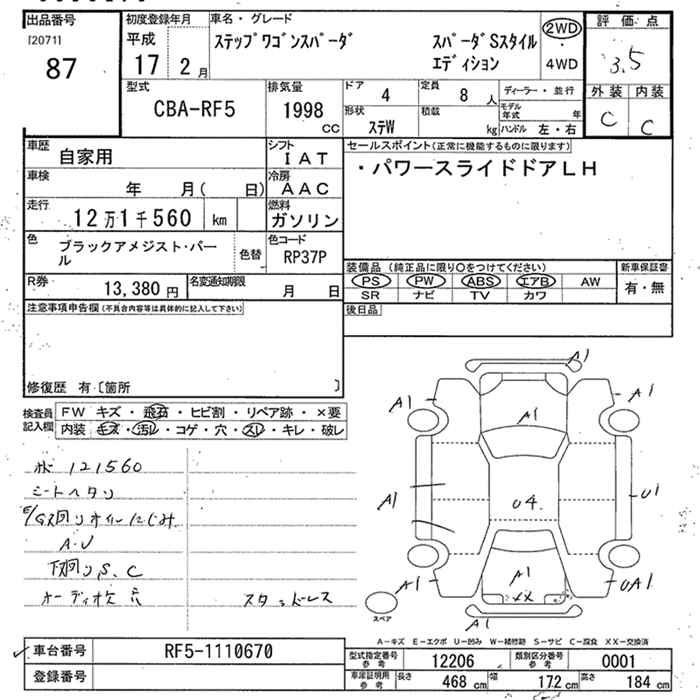 出品番号
[2071]
87
初度登録年月
平成
17 2月
車名・グレード
ステップワゴンスパーダ スパーダSスタイル
エディション
2WD
・
4WD
評価点
3.5
外装 内装
C C
型式
CBA-RF5
排気量
1998
CC
ドア 4 定員 8 人
形状 ステW 積載 kg
ディーラー・並行
モデル年式 年
ハンドル 左・右
車歴 自家用
シフト IAT
車検 年 月( 日)
冷房 AAC
走行 12万1千560 km
燃料 ガソリン
色 ブラックアメジスト・パール
色替
色コード RP37P
R券 13,380円
名変通知期限 月 日
セールスポイント(正常に機能するものに限ります)
・パワースライドドアLH
装備品(純正品に限り○をつけてください) 新車保証書
PS PW ABS エアB AW 有・無
SR ナビ TV カワ
後日品
注意事項申告欄(不具合内容等は具体的に記入して下さい)
修復歴 有〔箇所 〕
検査員記入欄
FW キズ・飛石・ヒビ割・リペア跡・×要
内装 キズ・汚レ・コゲ・穴・スレ・キレ・破レ
121560
シートヘタリ
E/G
オイルにじみ
A.U
下回りS、C
オーディオ欠
スタッドレス
A1
A1
A1
A1
A1
U1
U4.
A1
A1
XX
UA1
A1
スペア
A-キズ E-エクボ U-凹み W-補修跡 S-サビ C-腐食 XX-交換済
車台番号 RF5-1110670
登録番号
型式指定番号参考 12206 類別区分番号参考 0001
車庫証明用参考 長さ 468 cm 幅 172 cm 高さ 184 cm